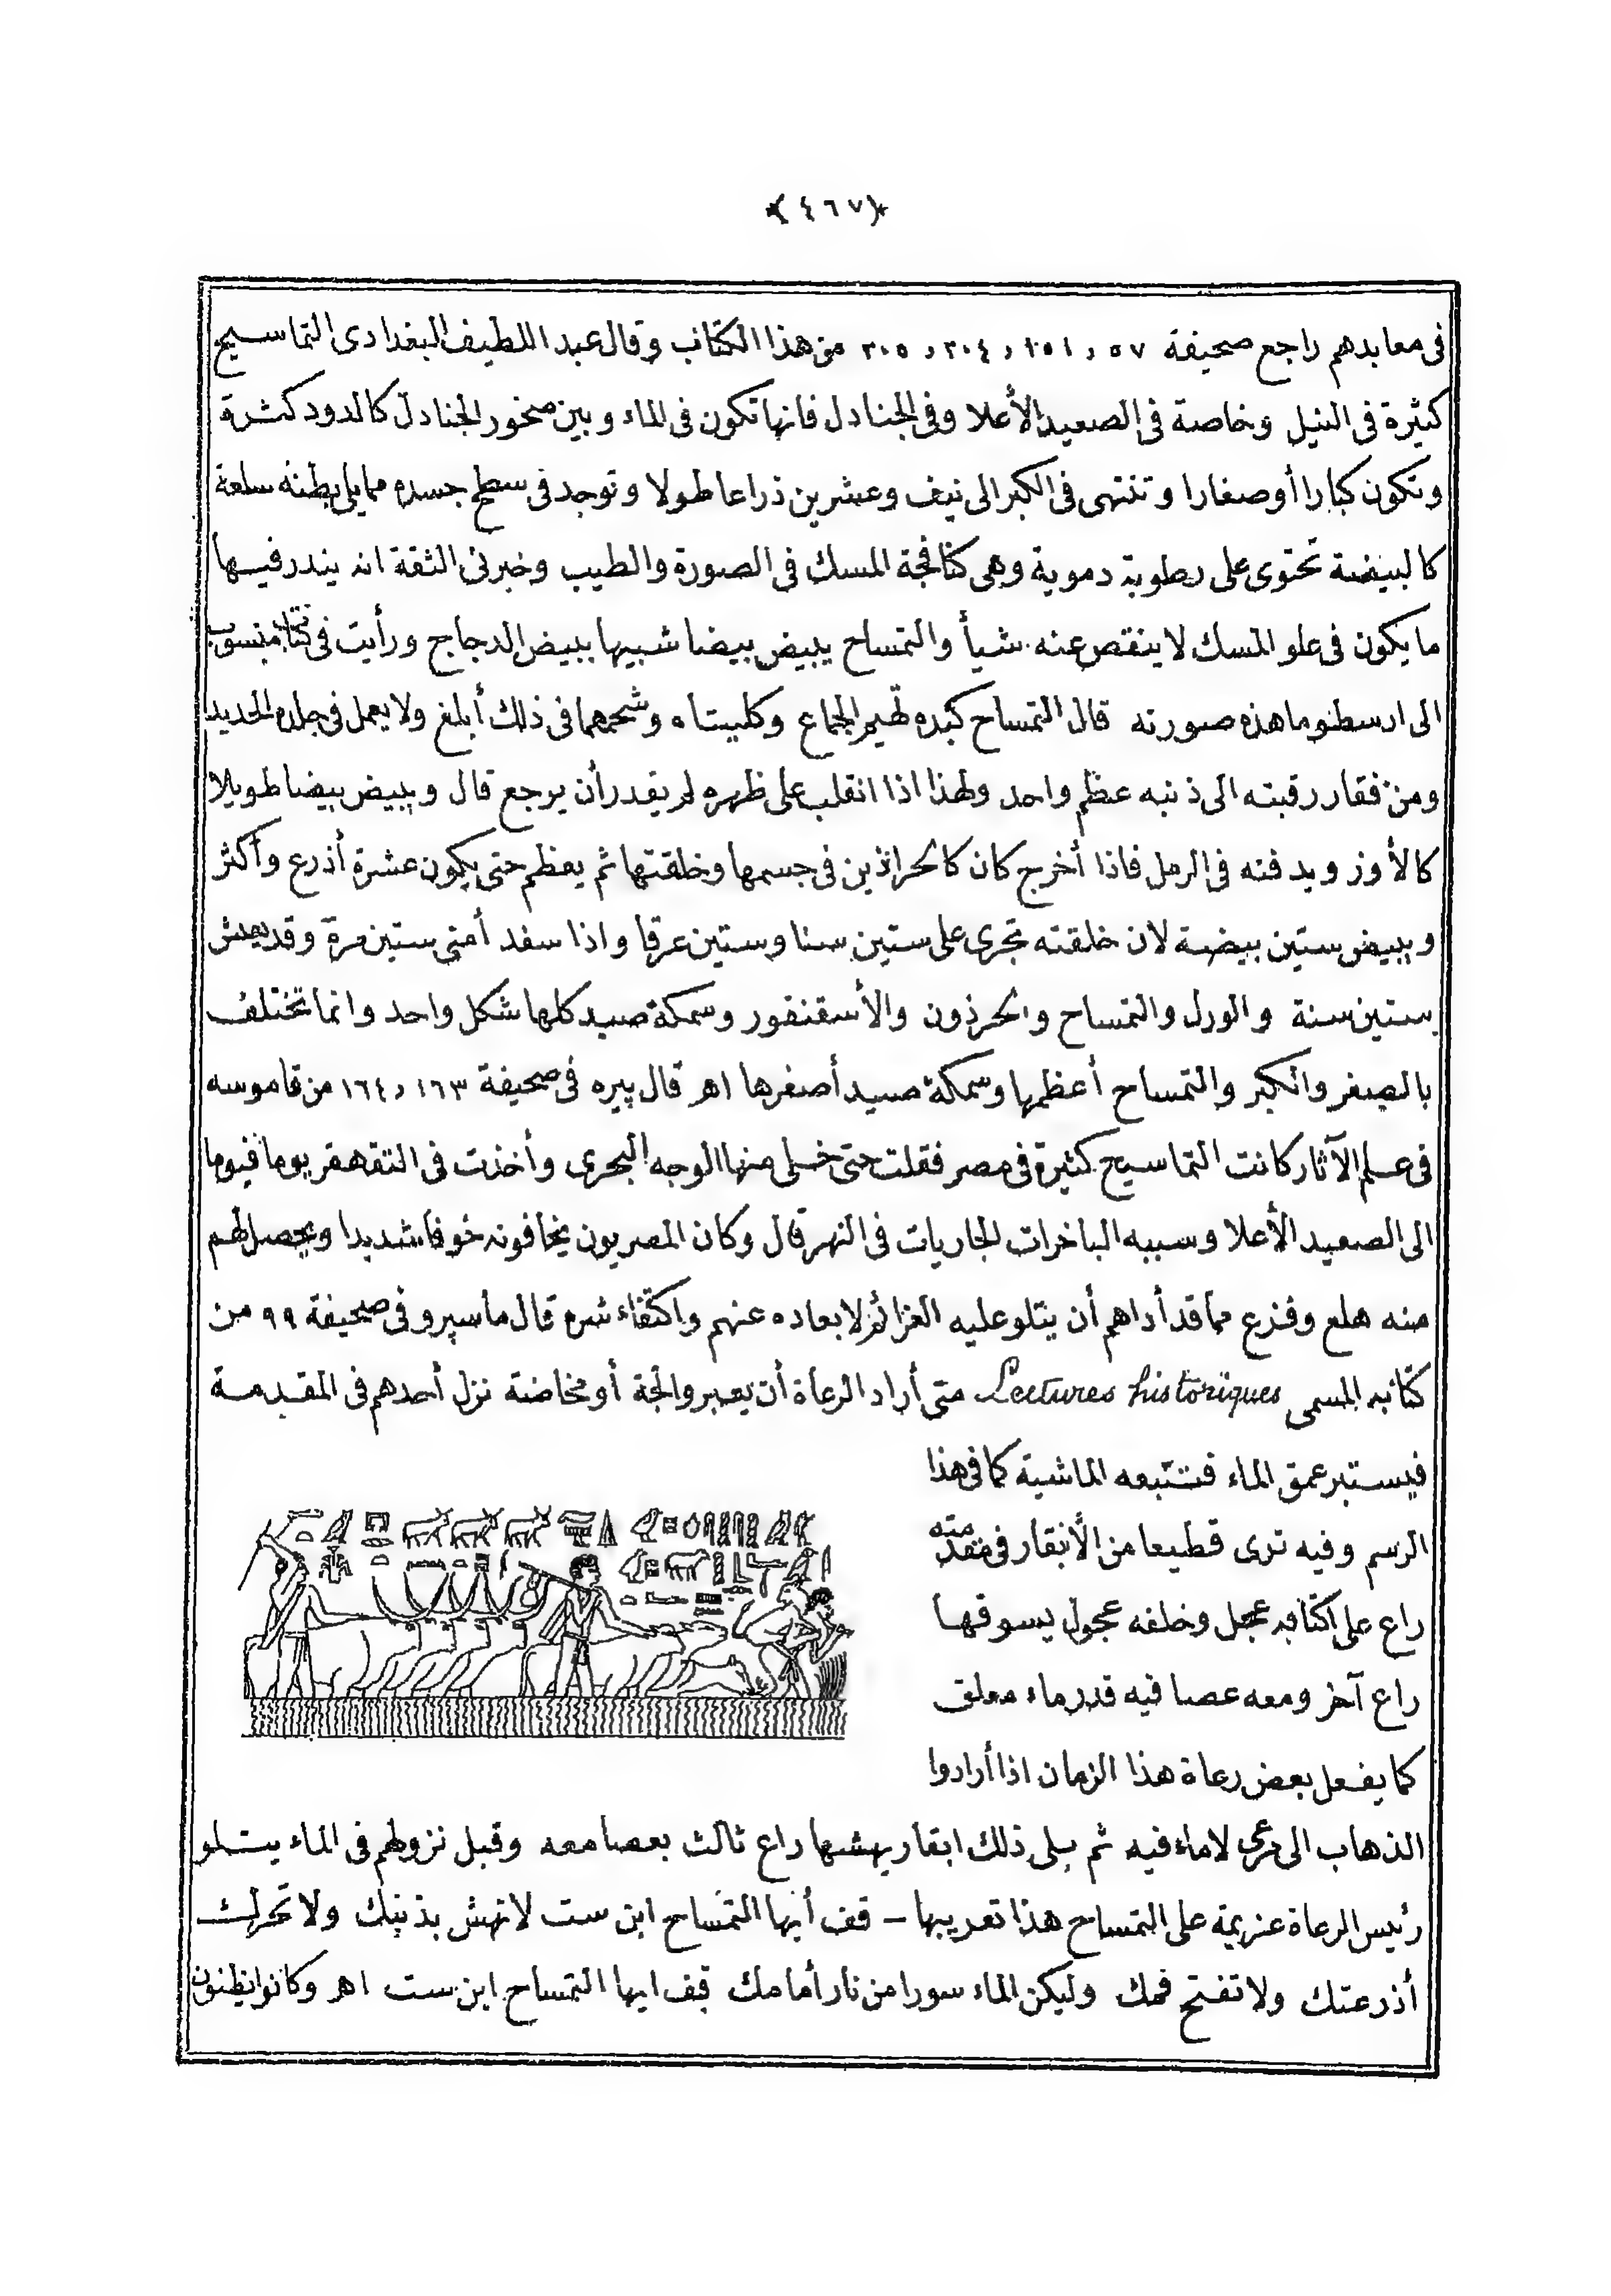 ﴿٤٦٧﴾
فى معابدهم راجع صحيفة ٥٧ و ١٥١ و ٣٠٤ و ٣٠٥ من هذا الكتاب وقال عبد اللطيف البغدادى التماسيح
كثيرة فى النيل وخاصة فى الصعيد الأعلا وفى الجنادل فانها تكون فى الماء وبين صخور الجنادل كالدود كثرة
وتكون كبارا أو صغارا وتنتهى فى الكبر الى نيف وعشرين ذراعا طولا وتوجد فى سطح جسده مما يلى بطنه سلعة
كالبيضة تحتوى على رطوبة دموية وهى كنافجة المسك فى الصورة والطيب وخبرنى الثقة انه يندر فيها
ما يكون فى علو المسك لا ينقص عنه شيأ والتمساح يبيض بيضا شبيها ببيض الدجاج ورأيت فى كتاب منسوب
الى ارسطو ما هذه صورته قال التمساح كبده تهيم الجماع وكليتاه وشحمهما فى ذلك أبلغ ولا يعمل فى جلده الحديد
ومن فقار رقبته الى ذنبه عظم واحد ولهذا اذا انقلب على ظهره لم يقدر أن يرجع قال ويبيض بيضا طويلا
كالأوز ويدفنه فى الرمل فاذا أخرج كان كالحراذين فى جسمها وخلقتها ثم يعظم حتى يكون عشرة أذرع وأكثر
ويبيض ستين بيضة لان خلقته تجرى على ستين سنا وستين عرقا واذا سفد أمنى ستين مرة وقد يعيش
ستين سنة والورل والتمساح والحرذون والأسقنقور وسمكة صيد كلها شكل واحد وانما تختلف
بالصغر والكبر والتمساح أعظمها وسمكة صيد أصغرها اهـ قال پيره فى صحيفة ١٦٣ و ١٦٤ من قاموسه
فى علم الآثار كانت التماسيح كثيرة فى مصر فقلت حتى خلى منها الوجه البحرى وأخذت فى التقهقر يوما فيوما
الى الصعيد الأعلا وسببه الباخرات الجاريات فى النهر قال وكان المصريون يخافونه خوفا شديدا ويحصل لهم
منه هلع وفزع مما قد أداهم أن يتلو عليه العزائم لابعاده عنهم واكتفاء شره قال ماسپرو فى صحيفة ٩٩ من
كتابه المسمى Lectures historiques متى أراد الرعاة أن يعبروا لجة أو مخاضة نزل أحدهم فى المقدمة
فيستبر عمق الماء فتتبعه الماشية كما فى هذا
الرسم وفيه ترى قطيعا من الأبقار فى مقدمته
راع على اكتافه عجل وخلفه عجول يسوقها
راع آخر ومعه عصا فيه قدر ماء معلق
كما يفعل بعض رعاة هذا الزمان اذا أرادوا
الذهاب الى مرعى لا ماء فيه ثم يلى ذلك ابقار يهشها راع ثالث بعصا معه وقبل نزولهم فى الماء يتلو
رئيس الرعاة عزيمة على التمساح هذا تعريبها - قف أيها التمساح ابن ست لا تهش بذنبك ولا تحرك
أذرعتك ولا تفتح فمك وليكن الماء سورا من نار أمامك قف ايها التمساح ابن ست اهـ وكانوا يظنون